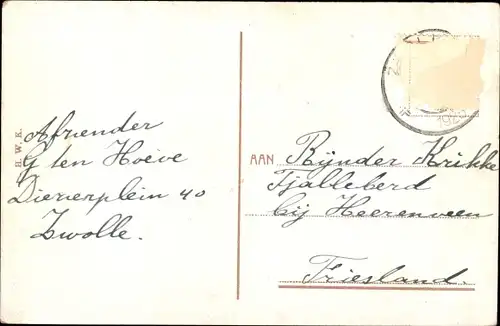 B. W. K.
Afzender
G ten Hoeve
Diezerplein 40
Zwolle.
AAN Rijnder Krikke
Tjalleberd
bij Heerenveen
Friesland.